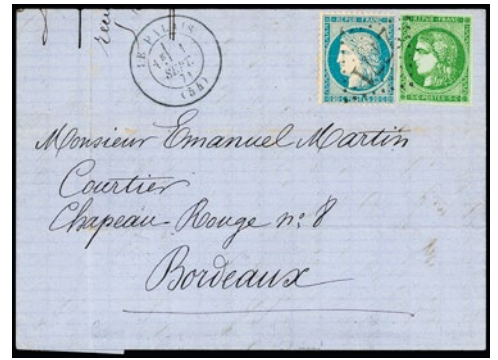 LE PALAIS
1
SEPT.
71
(54)
REPUB. FRANC.
POSTES
REPUB. FRANC.
5 POSTES 5
Monsieur Emanuel Martin
Courtier
Chapeau-Rouge nº 8
Bordeaux